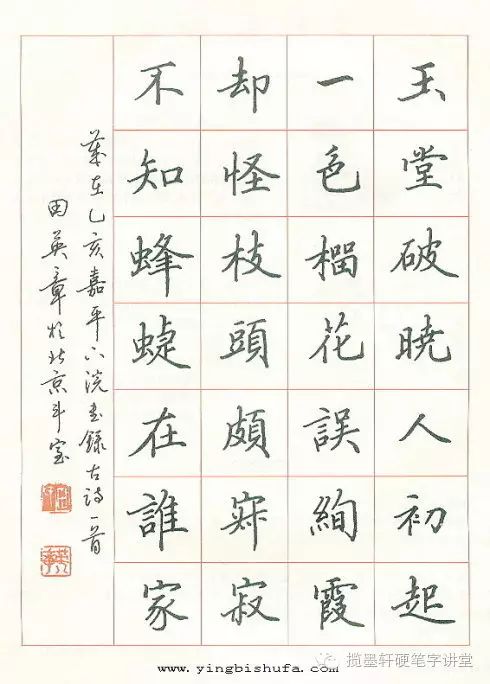 玉堂破曉人初起
一色榴花誤絢霞
却怪枝頭頗寂
不知蜂蜨在誰家
歲在乙亥嘉平下浣書錄古詩一首
田英章於北京斗室
www.yingbishufa.com
揽墨轩硬笔字讲堂